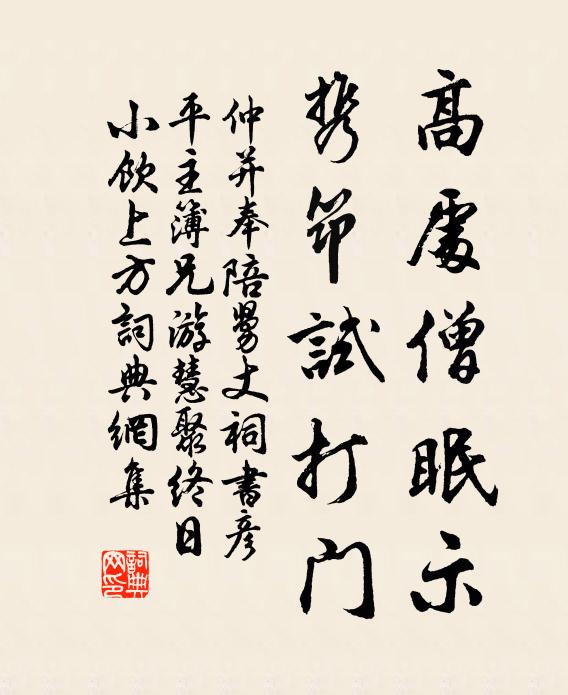 高處僧眠示
携筇試打門
仲并奉陪丈祠書彦
平主簿兄游慧聚終日
小飲上方詞典網集
詞典網印